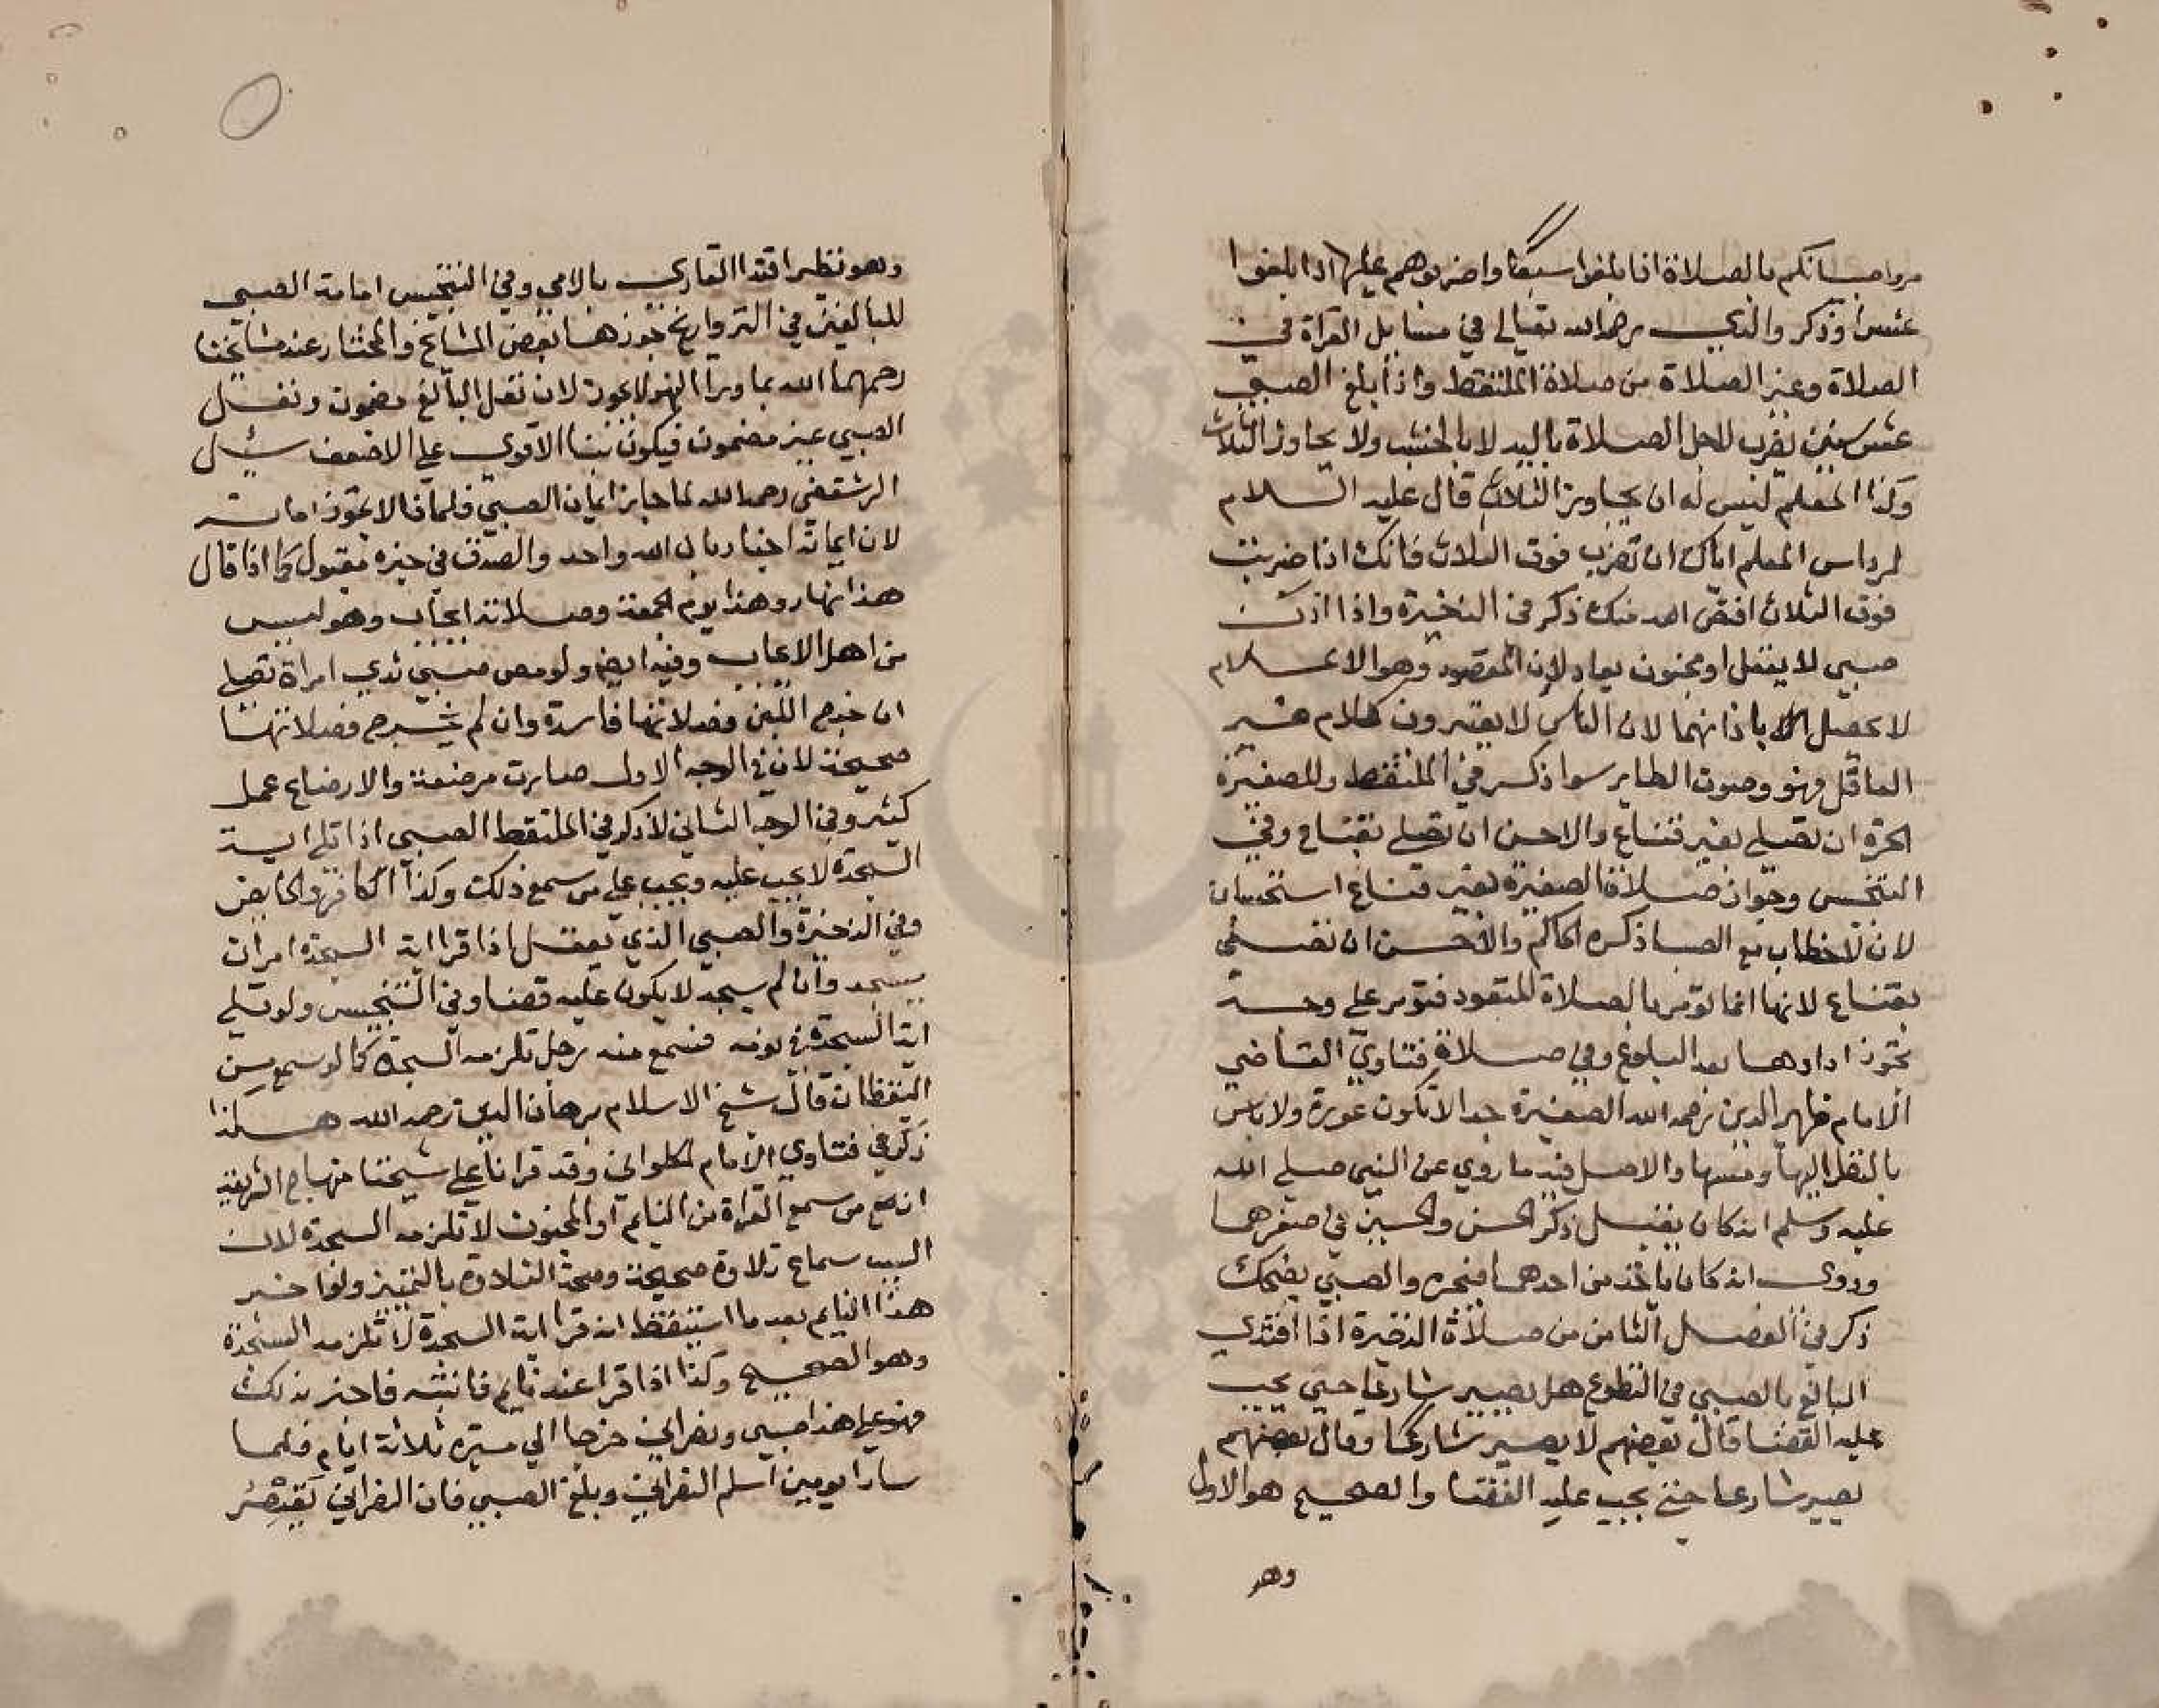 مروا صبيانكم بالصلاة اذا بلغوا سبعا واضربوهم عليها اذا بلغوا
عشرا وذكر والدي رحمه الله تعالى في مسايل القراة في
الصلاة وغير الصلاة من صلاة الملتقط واذا بلغ الصبي
عشر سنين يضرب لاجل الصلاة باليد لا بالخشب ولا يجاوز الثلاث
وكذا المعلم ليس له ان يجاوز الثلاث قال عليه السلام
لمرداس المعلم اياك ان تضرب فوق الثلاث فانك اذا ضربت
فوق الثلاث اقتص الله منك ذكر في الذخيرة واذا اذن
صبي لا يعقل او مجنون يعاد لان المقصود وهو الاعلام
لا يحصل باذانهما لان الناس لا يعتبرون كلام غير
العاقل فهو وصوت الطاير سوا ذكر في الملتقط وللصغيرة
الحرة ان تصلي بغير قناع والاحسن ان تصلي بقناع وفي
التجنيس وجواز صلاة الصغيرة بغير قناع استحسان
لان لا خطاب مع الصبا ذكره الحاكم والاحسن ان تصلي
بقناع لانها انما تؤمر بالصلاة للتعود فتؤمر على وجه
يجوز اداوها بعد البلوغ وفي صلاة فتاوي القاضي
الامام ظهير الدين رحمه الله الصغيرة جدا لا تكون عورة ولا باس
بالنظر اليها ومسها والاصل فيه ما روي عن النبي صلى الله
عليه وسلم انه كان يقبل ذكر الحسن والحسين في صغرهما
وروي انه كان ياخذ من احدهما فيجره والصبي يضحك
ذكر في الفصل الثامن من صلاة الذخيرة اذا اقتدي
البالغ بالصبي في التطوع هل يصير شارعا حتي يجب
عليه القضا قال بعضهم لا يصير شارعا وقال بعضهم
يصير شارعا حتي يجب عليه القضا والصحيح هو الاول
وهو
وهو نظير اقتدا القاري بالامي وفي التجنيس امامة الصبي
للبالغين في التروايح جوزها بعض المشايخ والمختار عند مشايخنا
رحمهم الله بما ورا النهر لا يجوز لان نفل البالغ مضمون ونفل
الصبي غير مضمون فيكون بنا الاقوي علي الاضعف سئل
الرستغفني رحمه الله لما جاز ايمان الصبي فلماذا لا يجوز امامته
لان ايمانه اخبار بان الله واحد والصدق في خبره مقبول كما اذا قال
هذا نهار وهذا يوم الجمعة وصلاته ايجاب وهو ليس
من اهل الايجاب وفيه ايضا ولو مص صبي ثدي امراة تصلي
ان خرج اللبن فصلاتها فاسدة وان لم يخرج فصلاتها
صحيحة لان في الوجه الاول صارت مرضعة والارضاع عمل
كثير وفي الوجه الثاني لا ذكر في الملتقط الصبي اذا تلي اية
السجدة لا يجب عليه ويجب علي من سمع ذلك وكذا الكافر والحايض
وفي الذخيرة والصبي الذي يعقل اذا قرا اية السجدة امر ان
يسجد وان لم يسجد لا يكون عليه قضا وفي التجنيس ولو تلي
اية السجدة في نومه فسمع منه رجل تلزمه السجدة كما لو سمع من
اليقظان قال شيخ الاسلام برهان الدين رحمه الله هكذا
ذكر في فتاوي الامام الحلواني وقد قرانا علي شيخنا منهاج الشريعة
ان من سمع القراة من النايم او المجنون لا تلزمه السجدة لان
السبب سماع تلاوة صحيحة وصحة التلاوة بالتمييز ولو اخبر
هذا النايم بعد ما استيقظ انه قرا اية السجدة لا تلزمه السجدة
وهو الصحيح وكذا اذا قرا عند نايم فانتبه فاخبر بذلك
فهو علي هذا صبي ونصراني خرجا الي مسيرة ثلاثة ايام فلما
سارا يومين اسلم النصراني وبلغ الصبي فان النصراني يقصر